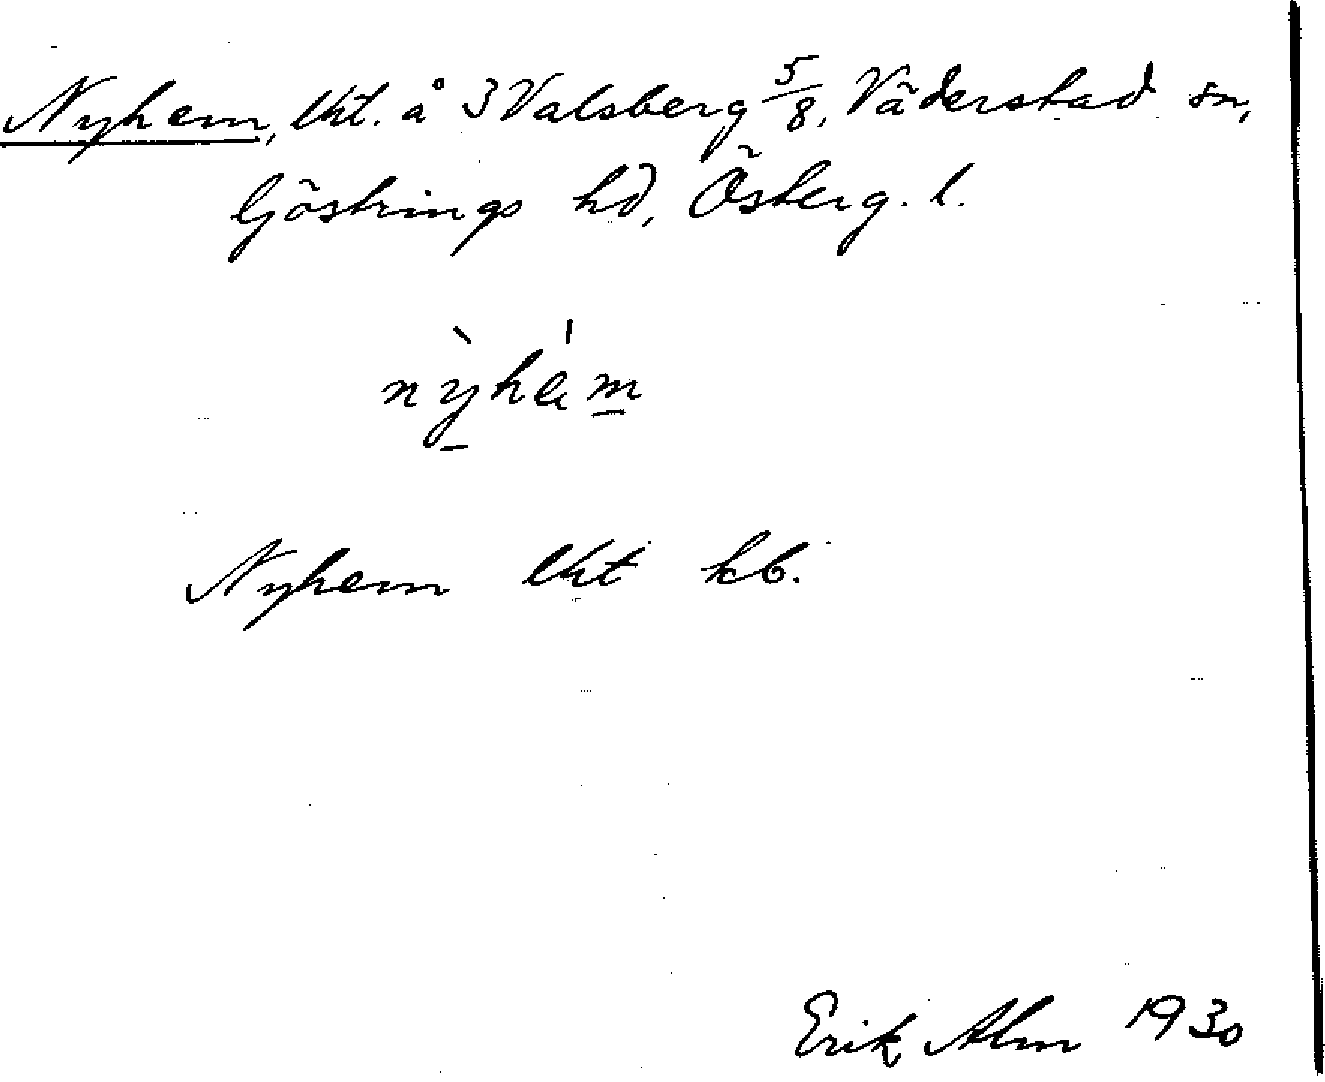 Nyhem, lht. å 3 Valsberg 5/8, Väderstad sn,
Göstrings hd, Österg. l.
nỳhém
Nyhem lht kb.
Erik Alm 1930